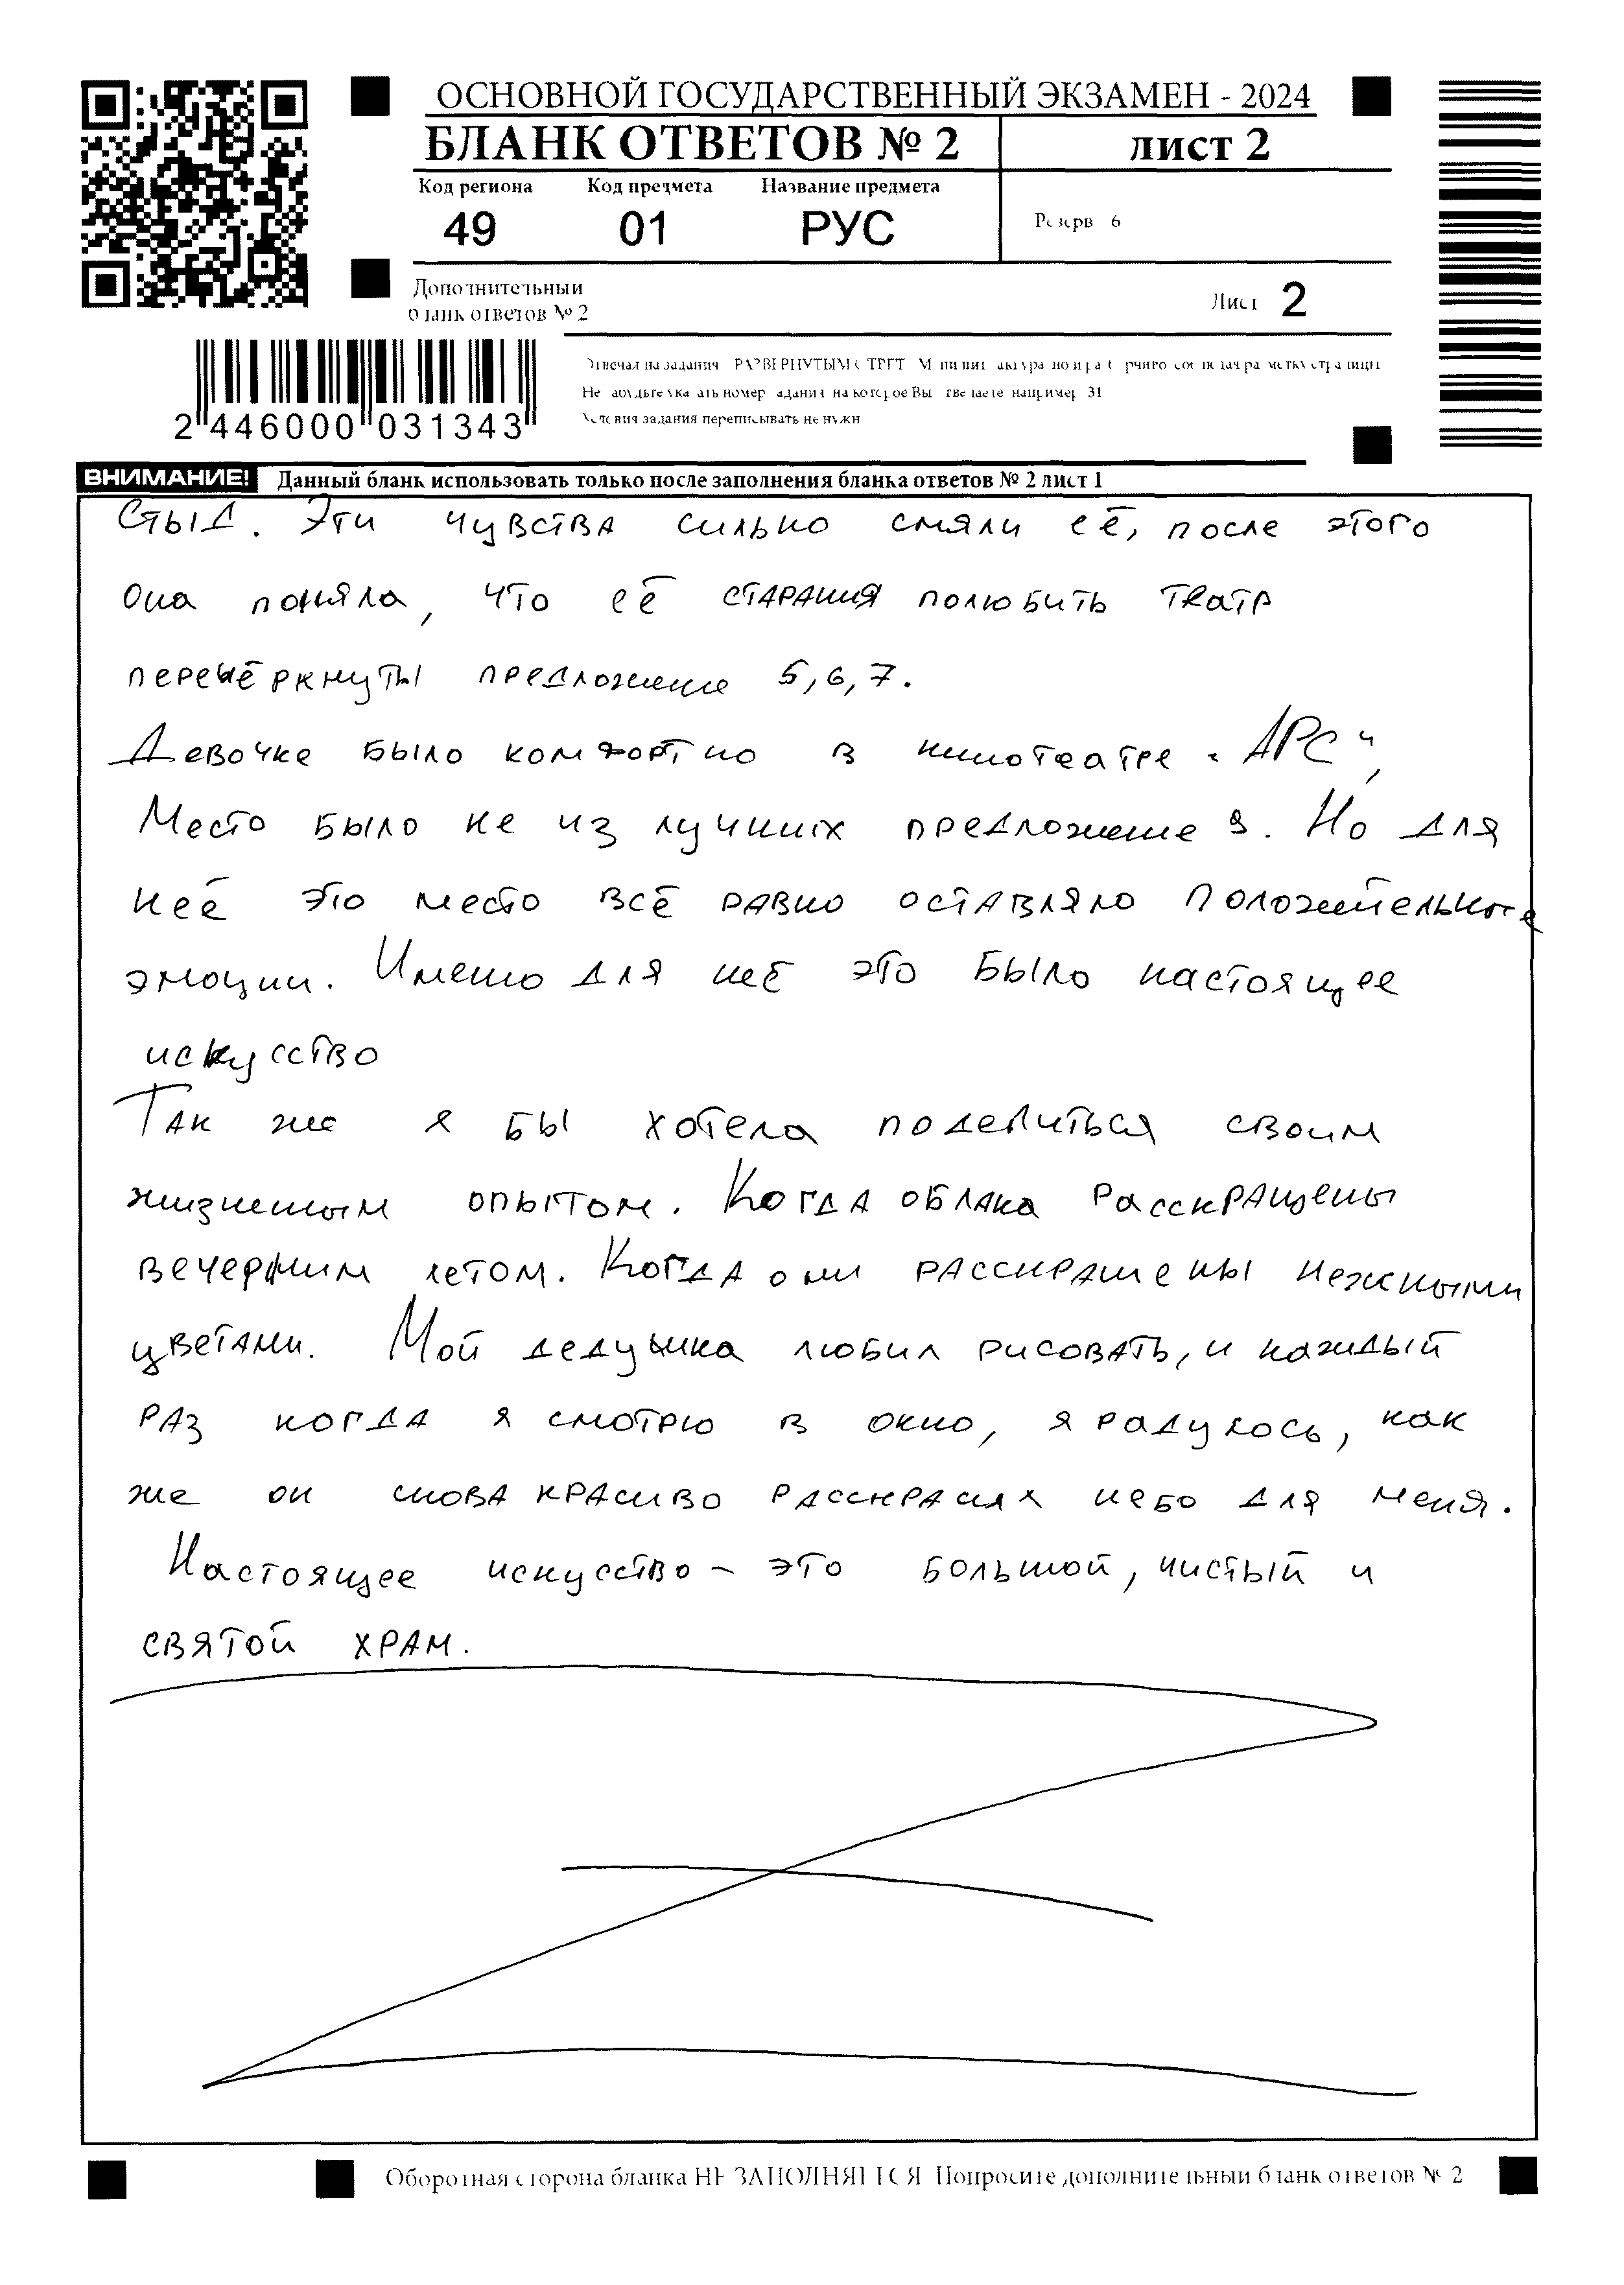 ОСНОВНОЙ ГОСУДАРСТВЕННЫЙ ЭКЗАМЕН - 2024
БЛАНК ОТВЕТОВ № 2 лист 2
Код региона Код предмета Название предмета
49 01 РУС Резерв 6
Дополнительный
бланк ответов № 2
Лист 2
2 446000 031343
Не забудьте указать номер задания на которое Вы отвечаете например 31
Условия задания переписывать не нужн
ВНИМАНИЕ! Данный бланк использовать только после заполнения бланка ответов № 2 лист 1
Стыд. Эти чувства сильно смяли её, после этого
она поняла, что её старания полюбить театр
перечёркнуты предложение 5,6,7.
Девочке было комфортно в кинотеатре "АРС",
Место было не из лучших предложение 9. Но для
неё это место всё равно оставляло положительные
эмоции. Именно для неё это было настоящее
искусство
Так же я бы хотела поделиться своим
жизненным опытом. Когда облака расскращены
вечерним летом. Когда они расскрашены нежными
цветами. Мой дедушка любил рисовать, и каждый
раз когда я смотрю в окно, я радуюсь, как
же он снова красиво расскрасил небо для меня.
Настоящее искусство - это большой, чистый и
святой храм.
Оборотная сторона бланка НЕ ЗАПОЛНЯЕТСЯ Попросите дополнительный бланк ответов № 2